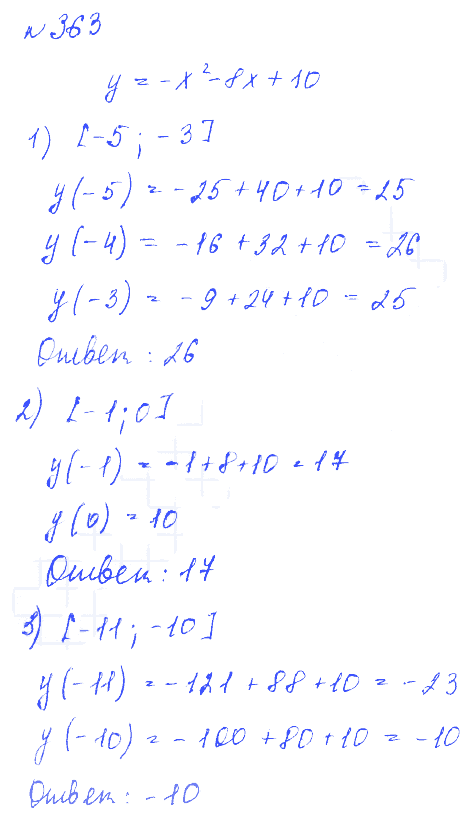 №363
y = -x²-8x+10
1) [-5; -3]
y(-5) = -25+40+10 = 25
y(-4) = -16+32+10 = 26
y(-3) = -9+24+10 = 25
Ответ: 26
2) [-1; 0]
y(-1) = -1+8+10 = 17
y(0) = 10
Ответ: 17
3) [-11; -10]
y(-11) = -121+88+10 = -23
y(-10) = -100+80+10 = -10
Ответ: -10